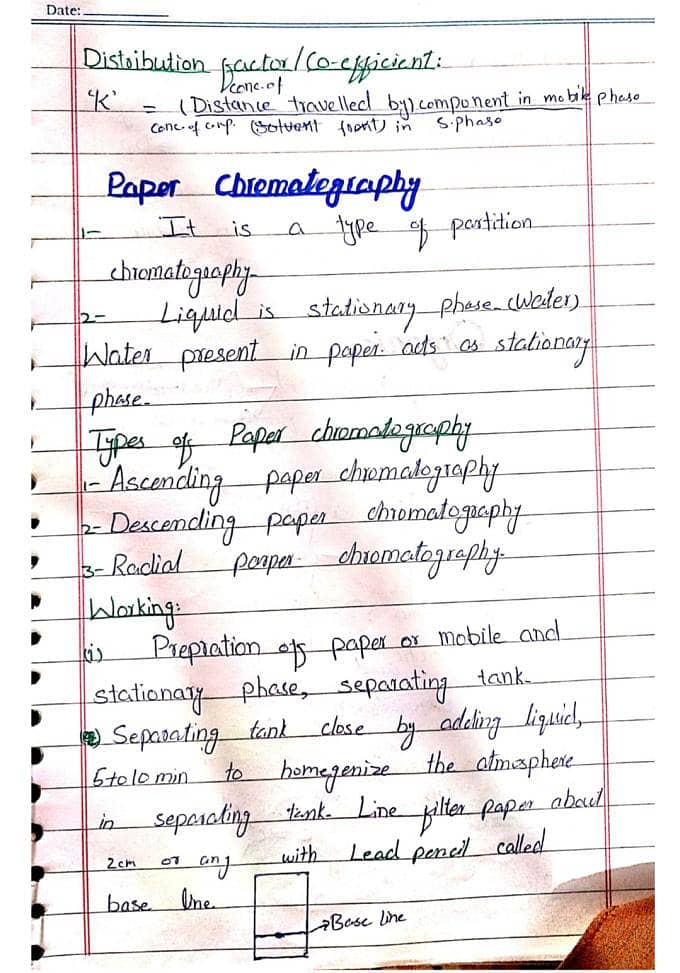 Date:
Distribution factor/Co-efficient:
conc. of
'K' = (Distance travelled by) component in mobile phase
conc. of comp. (solvent front) in S.phase
Paper Chromategraphy
1- It is a type of partition
chromatography-
2- Liquid is stationary phase. (Water)
Water present in paper. acts as stationary
phase-
Types of Paper chromatography
1- Ascending paper chromatography
2- Descending paper chromatography
3- Radial paper chromatography.
Working:
(i) Prepration of paper or mobile and
stationary phase, separating tank.
Separating tank close by adding liquid,
5 to 10 min to homegenize the atmosphere
in separating tank. Line filter paper about
2cm or any with Lead pencil called
base line.
→Base line